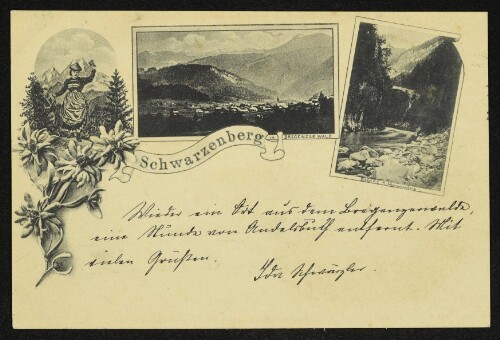 Schwarzenberg im BREGENZER WALD
Wieder ein Ort aus dem Bregenzerwalde,
eine Stunde von Andelsbuch entfernt. Mit
vielen Grüßen. Ida Schwärzler.